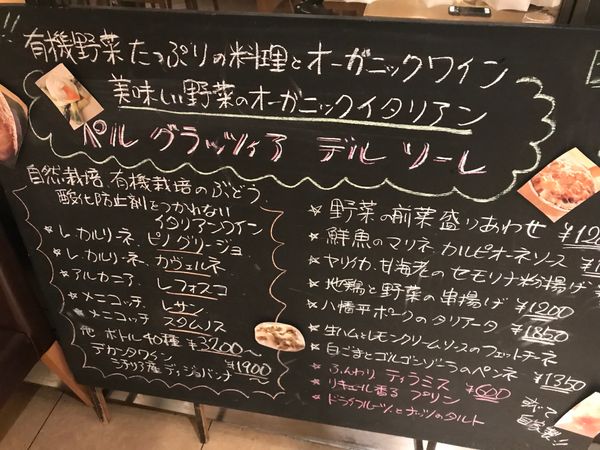 有機野菜たっぷりの料理とオーガニックワイン
美味しい野菜のオーガニックイタリアン
ペル グラッツィア デル ソーレ
自然栽培、有機栽培のぶどう、
酸化防止剤でつかれない
イタリアンワイン
★レ・カルリーネ、ピノグリージョ
★レ・カルリーネ、カヴェルネ
★アルカニア、レフォスコ
★メニコッチ、レサン
★メニコッチ スタムノス
他 ボトル40種 ¥3200〜
デカンタワイン ¥1900〜
シチリア産
★野菜の前菜盛りあわせ
★鮮魚のマリネ カルピオーネソース
★ヤリイカ、甘海老のセモリナ粉揚げ
★地鶏と野菜の串揚げ ¥1200
★八幡平ポークのタリアータ ¥1850
★生ハムとレモンクリームソースのフェットチーネ
★白ごまとゴルゴンゾーラのペンネ ¥1350
★ふんわり ティラミス ¥600
★リキュール香る プリン
★ドライフルーツとナッツのタルト
すべて
自家製!!